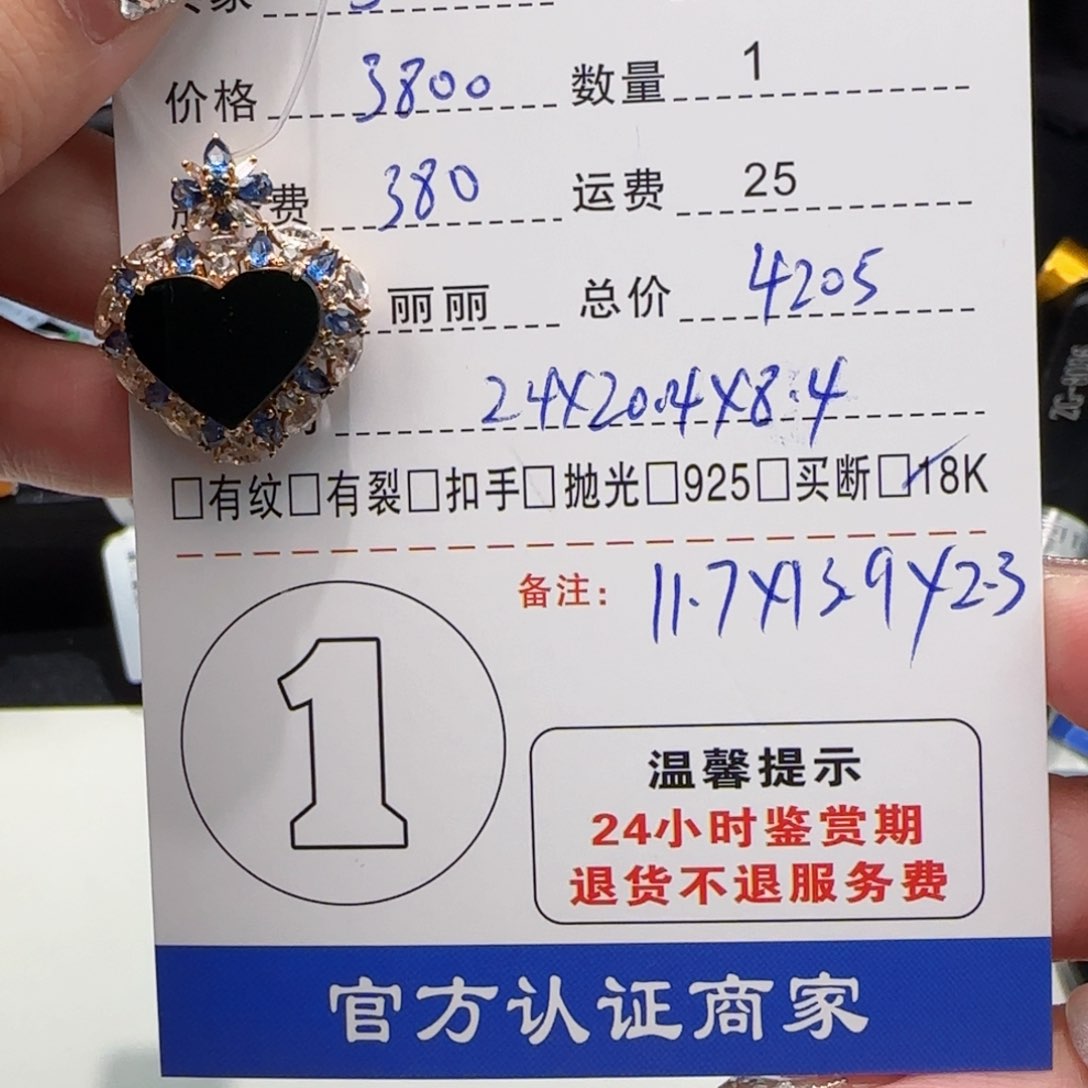 家
价格 3800 数量 1
费 380 运费 25
丽丽 总价 4205
24X20.4X8.4
□有纹□有裂□扣手□抛光□925□买断□18K
备注: 11.7X13.9X2.3
1
温馨提示
24小时鉴赏期
退货不退服务费
官方认证商家